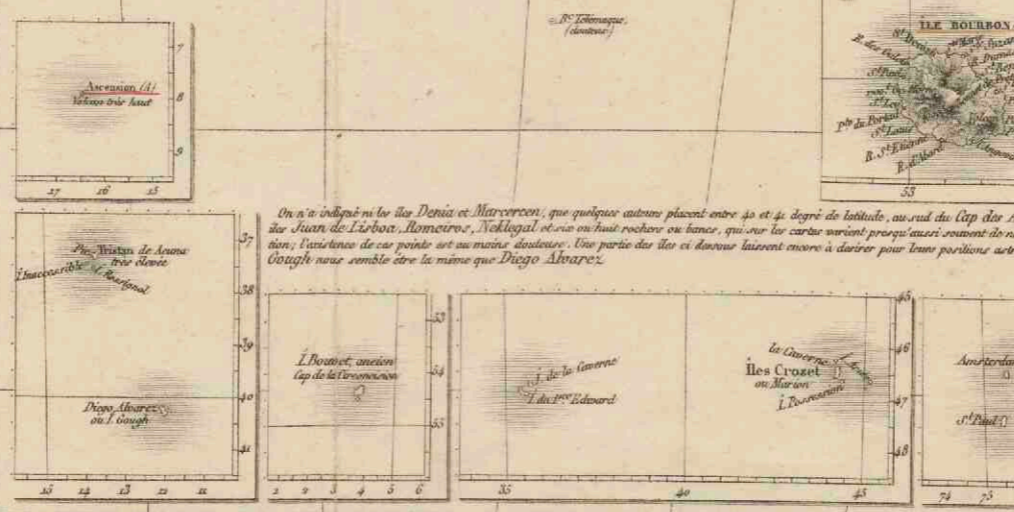 Rr. Télémaque,
(douteux)
7
Ascension (A)
Volcan très haut
8
9
17 16 15
ÎLE BOURBON
St. Denis
R. des Galets
St. Paul
St. Leu
Pte. du Portail
St. Louis
R. St. Etienne
R. d'Abord
53
On n'a indiqué ni les îles Denia et Marcercen, que quelques auteurs placent entre 40 et 41 degré de latitude, au sud du Cap des
îles Juan de Lisboa, Romeiros, Neklegal et six ou huit rochers ou bancs, qui sur les cartes varient presqu'aussi souvent de
tion; l'existence de ces points est au moins douteuse. Une partie des îles ci dessous laissent encore à desirer pour leurs positions
Gough nous semble être la même que Diego Alvarez
37
Tristan de Acuna
très élevée
I. Inaccessible
I. Rossignol
38
39
Diego Alvarez
ou I. Gough
40
41
15 14 13 12 11
53
I. Bouvet, ancien
Cap de la Circoncision
54
55
2 3 4 5 6
45
I. de la Caverne
I. du Pce. Edward
la Caverne
46
Îles Crozet
ou Marion
I. Possession
47
48
35 40 45
Amsterda
St. Paul
74 75